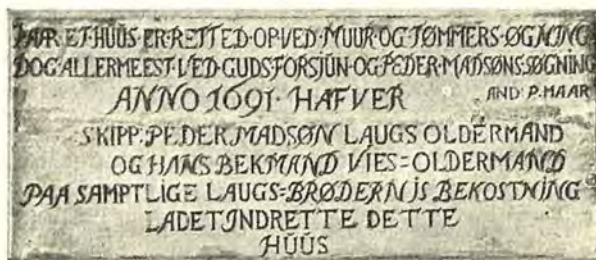 PAAR·ET·HUUS·ER·RETTED·OPVED·MUUR·OG·TØMMERS·ØGNING
DOG·ALLERMEEST·VED·GUDS·FORSJŪN·OG·PEDER·MADSØNS·SØGNING
ANNO 1691· HAFVER AND·P.MAAR
SKIPP:PEDER MADSØN LAUGS OLDERMAND
OG HANS BEKMAND VIES=OLDERMAND
PAA SAMPTLIGE LAUGS=BRØDERNIS BEKOSTNING
LADET INDRETTE DETTE
HŪŪS